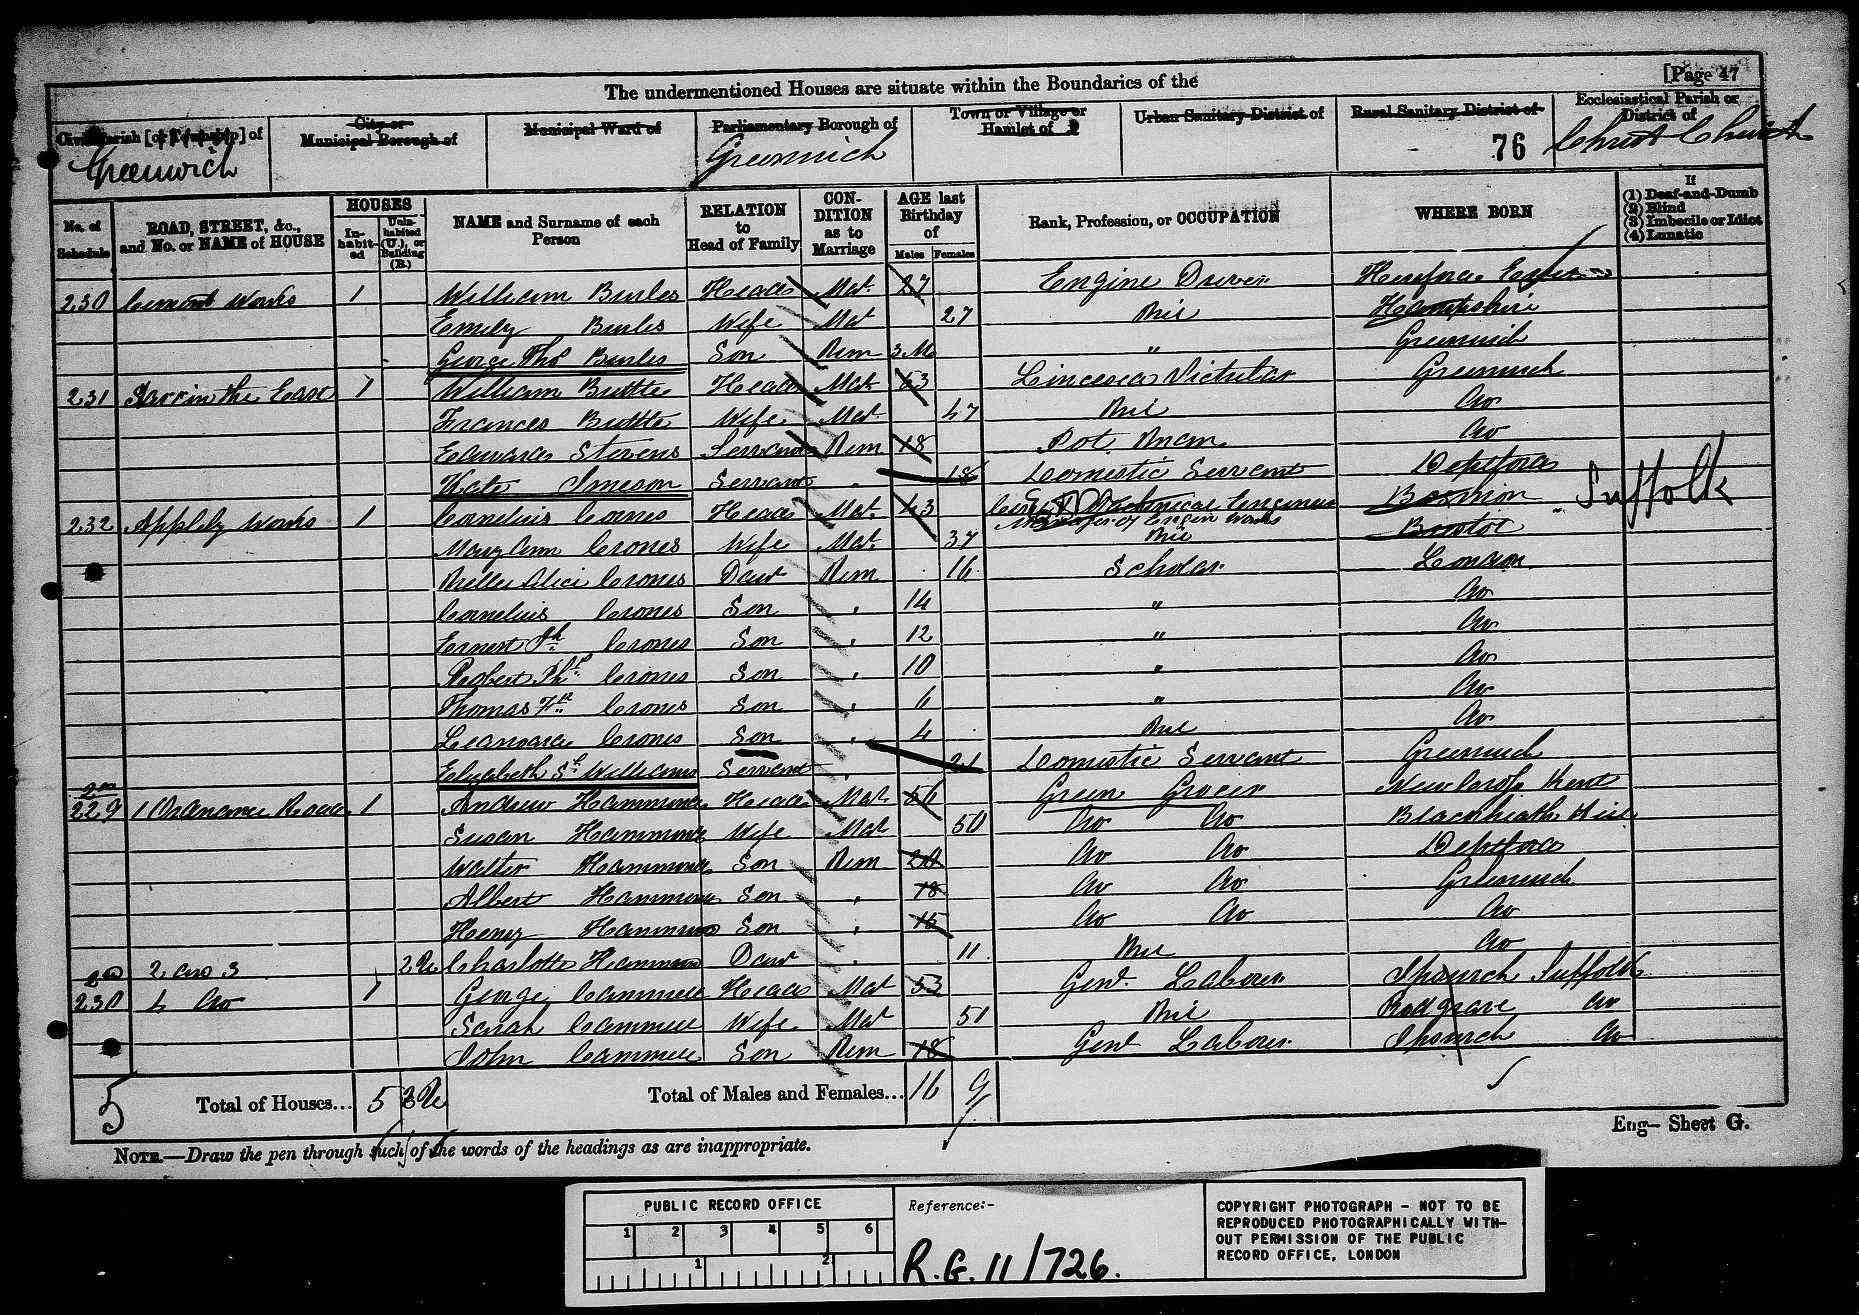 The undermentioned Houses are situate within the Boundaries of the
[Page 47
Civil Parish [or Township] of
City or Municipal Borough of
Municipal Ward of
Parliamentary Borough of
Town or Village or Hamlet of
Urban Sanitary District of
Rural Sanitary District of
Ecclesiastical Parish or District of
Greenwich
Greenwich
76
Christ Church
No. of Schedule
ROAD, STREET, &c., and No. or NAME of HOUSE
HOUSES
Inhabited
Uninhabited (U.), or Building (B.)
NAME and Surname of each Person
RELATION to Head of Family
CONDITION as to Marriage
AGE last Birthday of
Males
Females
Rank, Profession, or OCCUPATION
WHERE BORN
If
(1) Deaf-and-Dumb
(2) Blind
(3) Imbecile or Idiot
(4) Lunatic
230 Cement Works 1 William Burles Head Mar 27 Engine Driver
Emily Burles Wife Mar 27 Nil Hampshire
George Thos Burles Son Unm 3 M " Greenwich
231 Star in the East 1 William Buttle Head Mar 53 Licensed Victular Greenwich
Frances Buttle Wife Mar 47 Nil do
Edward Stevens Servant Unm 18 Pot Man do
Kate Imeson Servant " 18 Domestic Servant Deptford
232 Appleby Works 1 Cornelius Crones Head Mar 43 Mechanical Engineer Suffolk
Manager of Engin Works
Mary Ann Crones Wife Mar 37 Nil Bristol
Nelle Alice Crones Daur Unm 16 Scholar London
Cornelius Crones Son " 14 " do
Ernest Crones Son " 12 " do
Robert Crones Son " 10 " do
Thomas Crones Son " 6 " do
Leanard Crones Son " 4 Nil do
Elizabeth Williams Servant " 21 Domestic Servant Greenwich
229 1 Ordnance Road 1 Andrew Hammond Head Mar 56 Green Grocer Kent
Susan Hammond Wife Mar 50 do do Blackheath Hill
Walter Hammond Son Unm 20 do do Deptford
Albert Hammond Son " 18 do do Greenwich
Henry Hammond Son " 15 do do do
2 and 3 2 U Charlotte Hammond Daur " 11 Nil do
230 4 do 1 George Cammell Head Mar 53 Genl. Labour Ipswich Suffolk
Sarah Cammell Wife Mar 51 Nil Redgrave do
John Cammell Son Unm 18 Genl Labour Ipswich do
5
Total of Houses... 5 2 U
Total of Males and Females... 16 9
Eng— Sheet G.
NOTE.—Draw the pen through such of the words of the headings as are inappropriate.
PUBLIC RECORD OFFICE
1 2 3 4 5 6
1 2
Reference:-
R.G. 11/726.
COPYRIGHT PHOTOGRAPH - NOT TO BE
REPRODUCED PHOTOGRAPHICALLY WITH-
OUT PERMISSION OF THE PUBLIC
RECORD OFFICE, LONDON